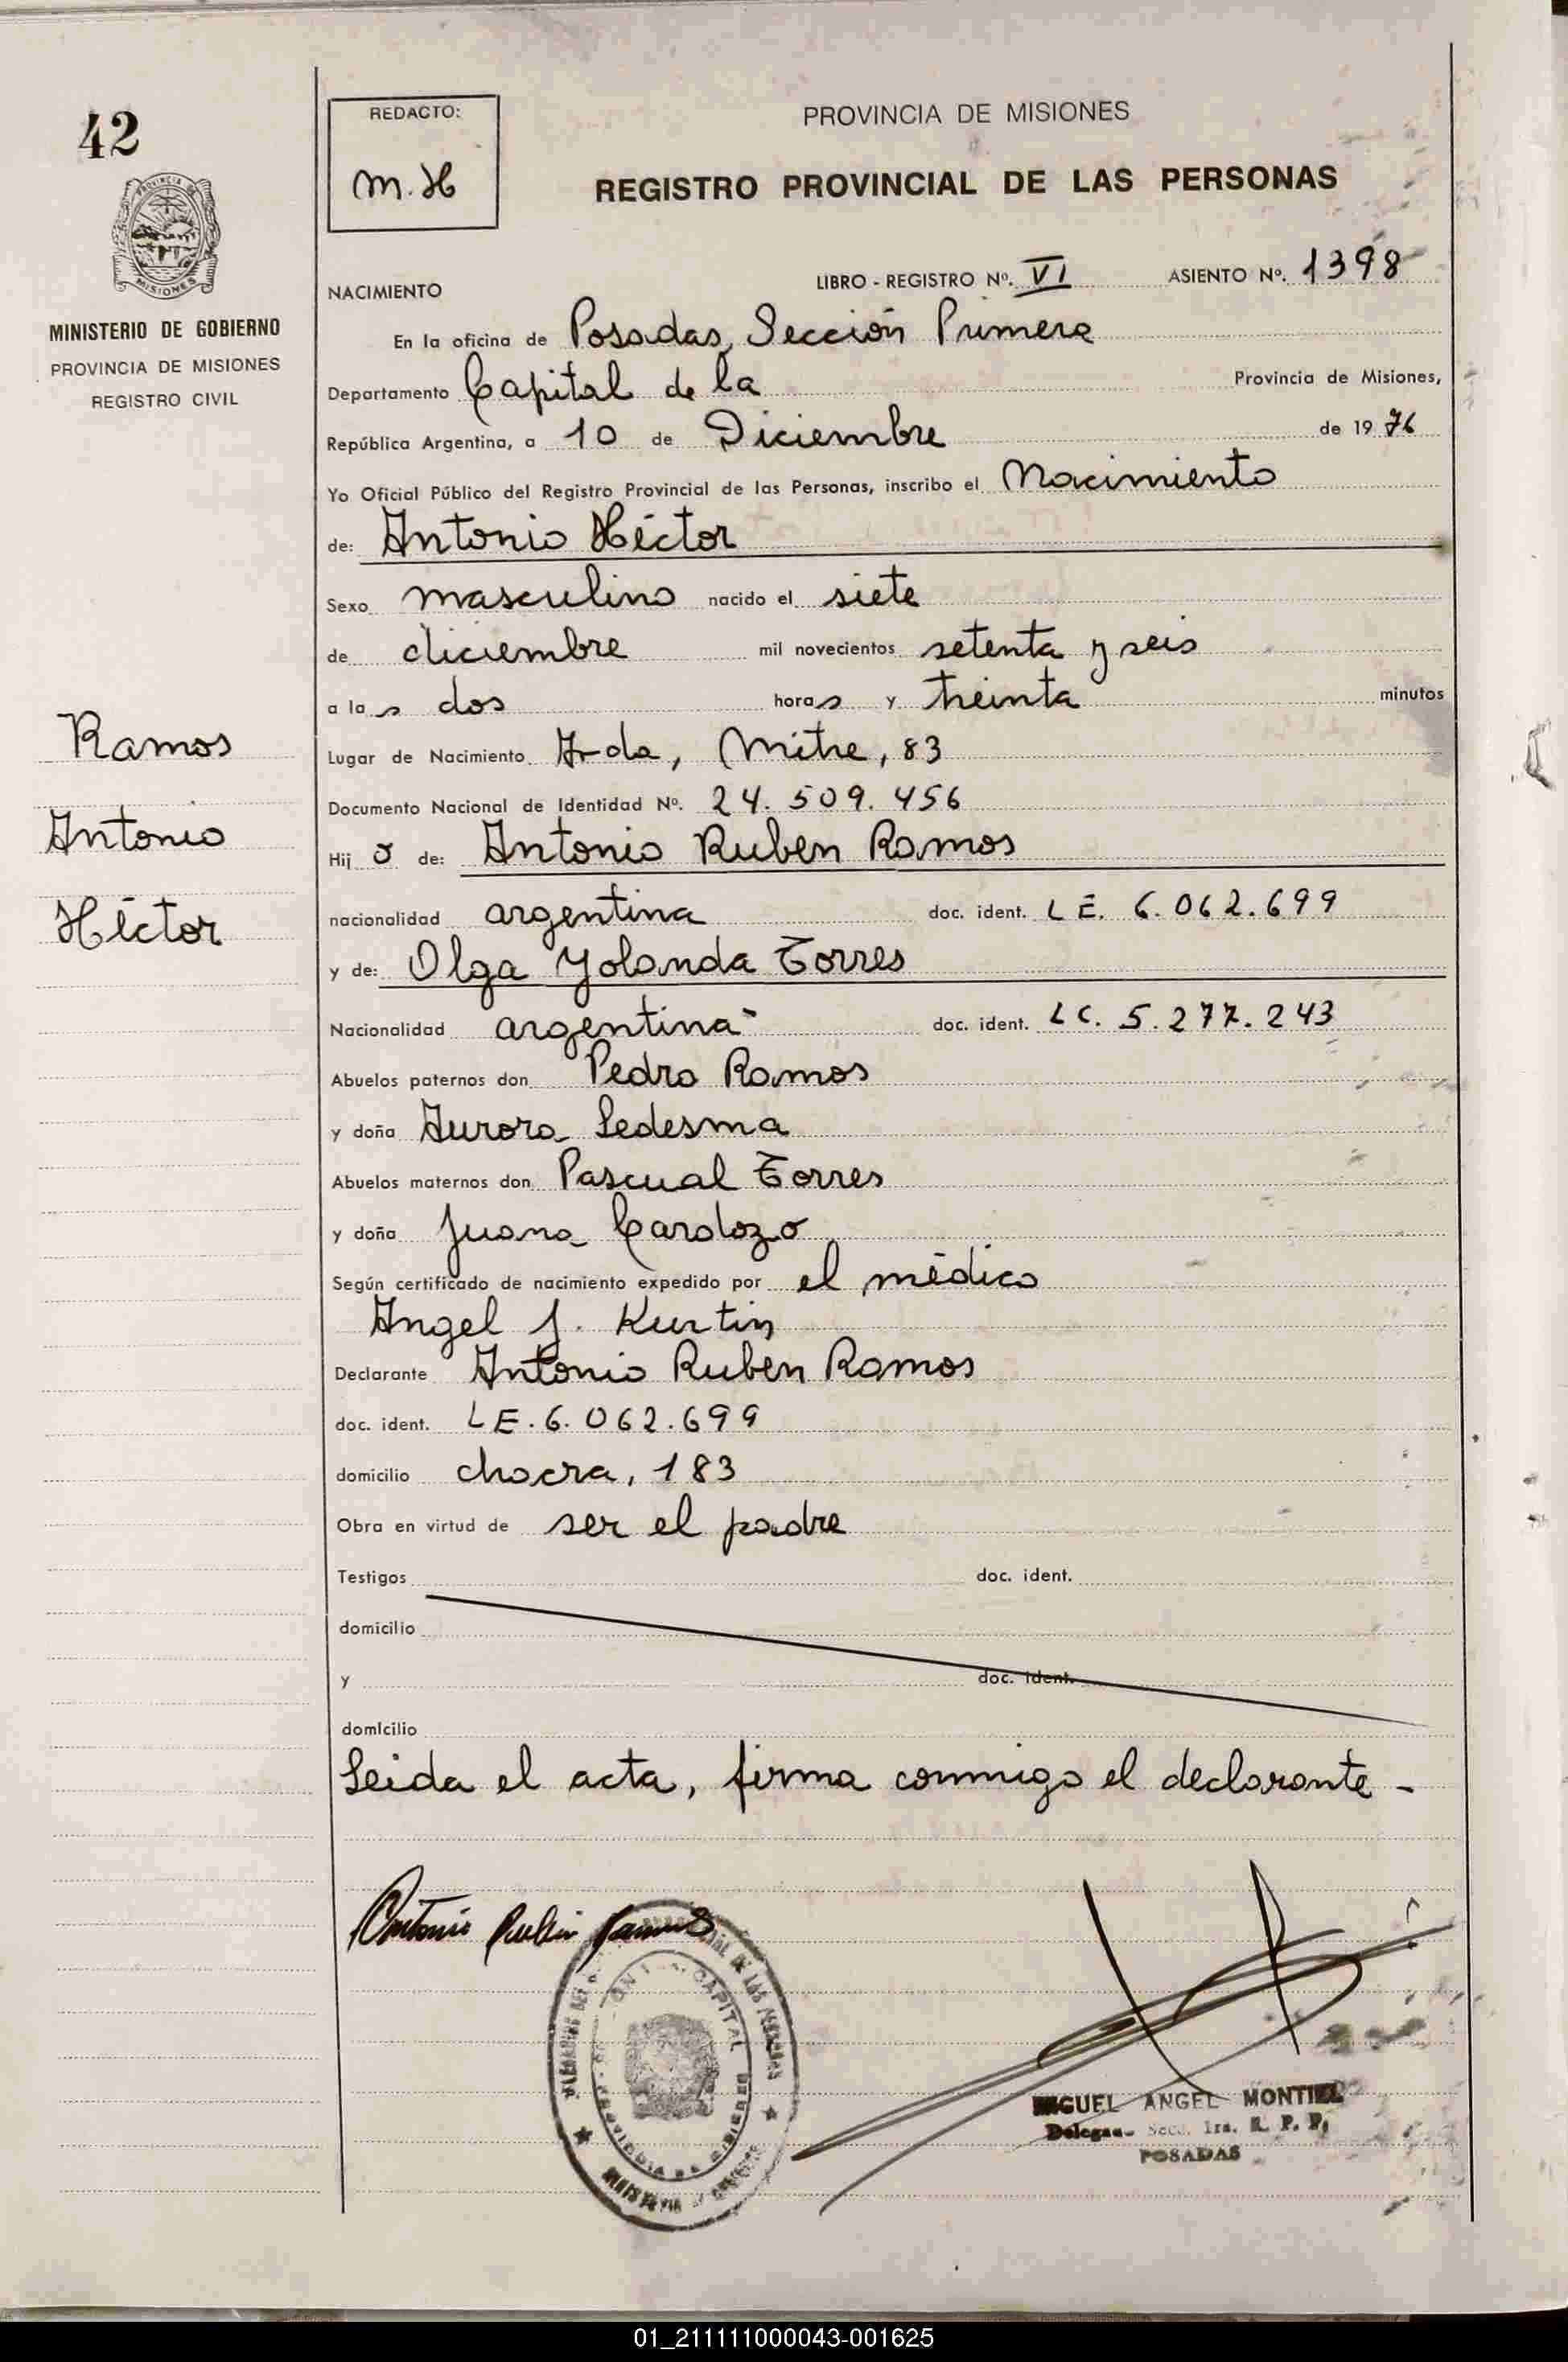 42
REDACTO:
M.H
PROVINCIA DE MISIONES
REGISTRO PROVINCIAL DE LAS PERSONAS
MISIONES
MINISTERIO DE GOBIERNO
PROVINCIA DE MISIONES
REGISTRO CIVIL
NACIMIENTO LIBRO - REGISTRO Nº. VI ASIENTO Nº. 1398
En la oficina de Posadas, Sección Primera
Departamento Capital de la Provincia de Misiones,
República Argentina, a 10 de Diciembre de 1976
Yo Oficial Público del Registro Provincial de las Personas, inscribo el Nacimiento
de: Antonio Héctor
Sexo masculino nacido el siete
de diciembre mil novecientos setenta y seis
a las dos horas y treinta minutos
Lugar de Nacimiento Avda, Mitre, 83
Documento Nacional de Identidad Nº. 24.509.456
Hijo de: Antonio Ruben Ramos
nacionalidad argentina doc. ident. LE. 6.062.699
y de: Olga Yolanda Torres
Nacionalidad argentina doc. ident. LC. 5.277.243
Abuelos paternos don Pedro Ramos
y doña Aurora Ledesma
Abuelos maternos don Pascual Torres
y doña Juana Cardozo
Según certificado de nacimiento expedido por el médico
Angel J. Kurtin
Declarante Antonio Ruben Ramos
doc. ident. LE.6.062.699
domicilio chacra, 183
Obra en virtud de ser el padre
Testigos doc. ident.
domicilio
y doc. ident.
domicilio
Leida el acta, firma conmigo el declarante -
Ramos
Antonio
Héctor
Antonio Rubén Ramos
MIGUEL ANGEL MONTIEL
Secc. 1ra. R. P. P.
POSADAS
01_211111000043-001625